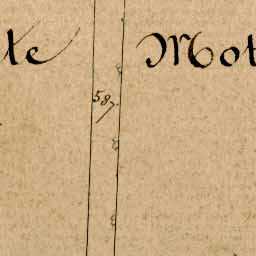 te Mot
587